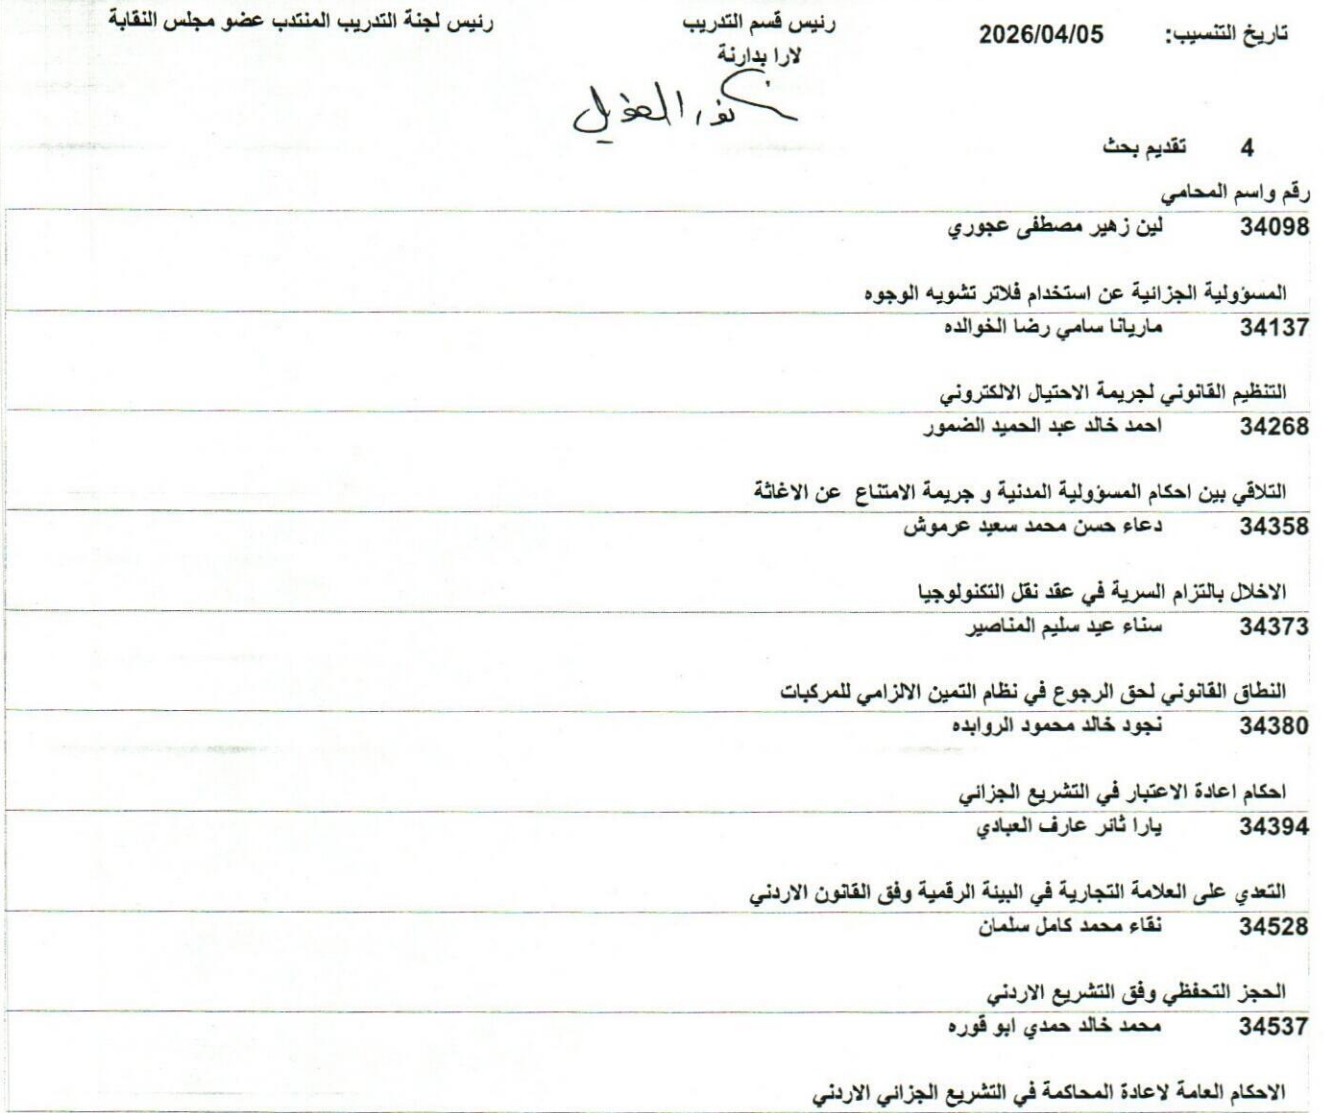 تاريخ التنسيب: 2026/04/05 رئيس قسم التدريب رئيس لجنة التدريب المنتدب عضو مجلس النقابة
لارا بدارنة
4 تقديم بحث
رقم واسم المحامي
34098 لين زهير مصطفى عجوري
المسؤولية الجزائية عن استخدام فلاتر تشويه الوجوه
34137 ماريانا سامي رضا الخوالده
التنظيم القانوني لجريمة الاحتيال الالكتروني
34268 احمد خالد عبد الحميد الضمور
التلاقي بين احكام المسؤولية المدنية و جريمة الامتناع عن الاغاثة
34358 دعاء حسن محمد سعيد عرموش
الاخلال بالتزام السرية في عقد نقل التكنولوجيا
34373 سناء عيد سليم المناصير
النطاق القانوني لحق الرجوع في نظام التمين الالزامي للمركبات
34380 نجود خالد محمود الروابده
احكام اعادة الاعتبار في التشريع الجزائي
34394 يارا ثائر عارف العبادي
التعدي على العلامة التجارية في البيئة الرقمية وفق القانون الاردني
34528 نقاء محمد كامل سلمان
الحجز التحفظي وفق التشريع الاردني
34537 محمد خالد حمدي ابو قوره
الاحكام العامة لاعادة المحاكمة في التشريع الجزائي الاردني